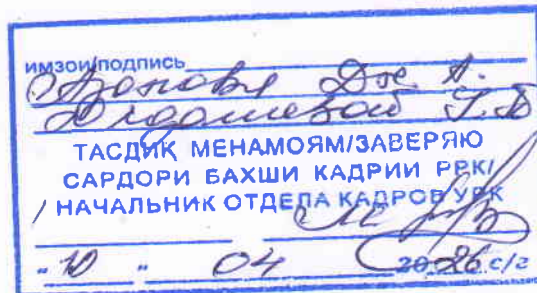 имзои/подпись
Дж. А.
ТАСДИҚ МЕНАМОЯМ/ЗАВЕРЯЮ
САРДОРИ БАХШИ КАДРИИ РРК/
/ НАЧАЛЬНИК ОТДЕЛА КАДРОВ УРК
"10" 04 2026 с/г